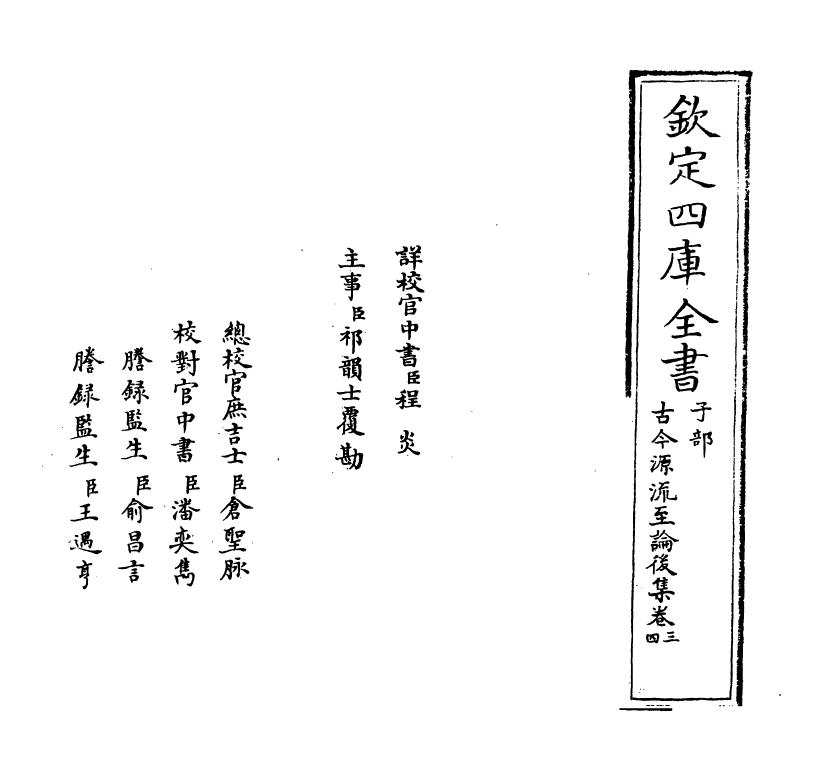 欽定四庫全書
子部
古今源流至論後集卷三四
詳校官中書臣程炎
主事臣祁韻士覆勘
總校官庶吉士臣倉聖脉
校對官中書臣潘奕雋
謄録監生臣俞昌言
謄録監生臣王遇亨